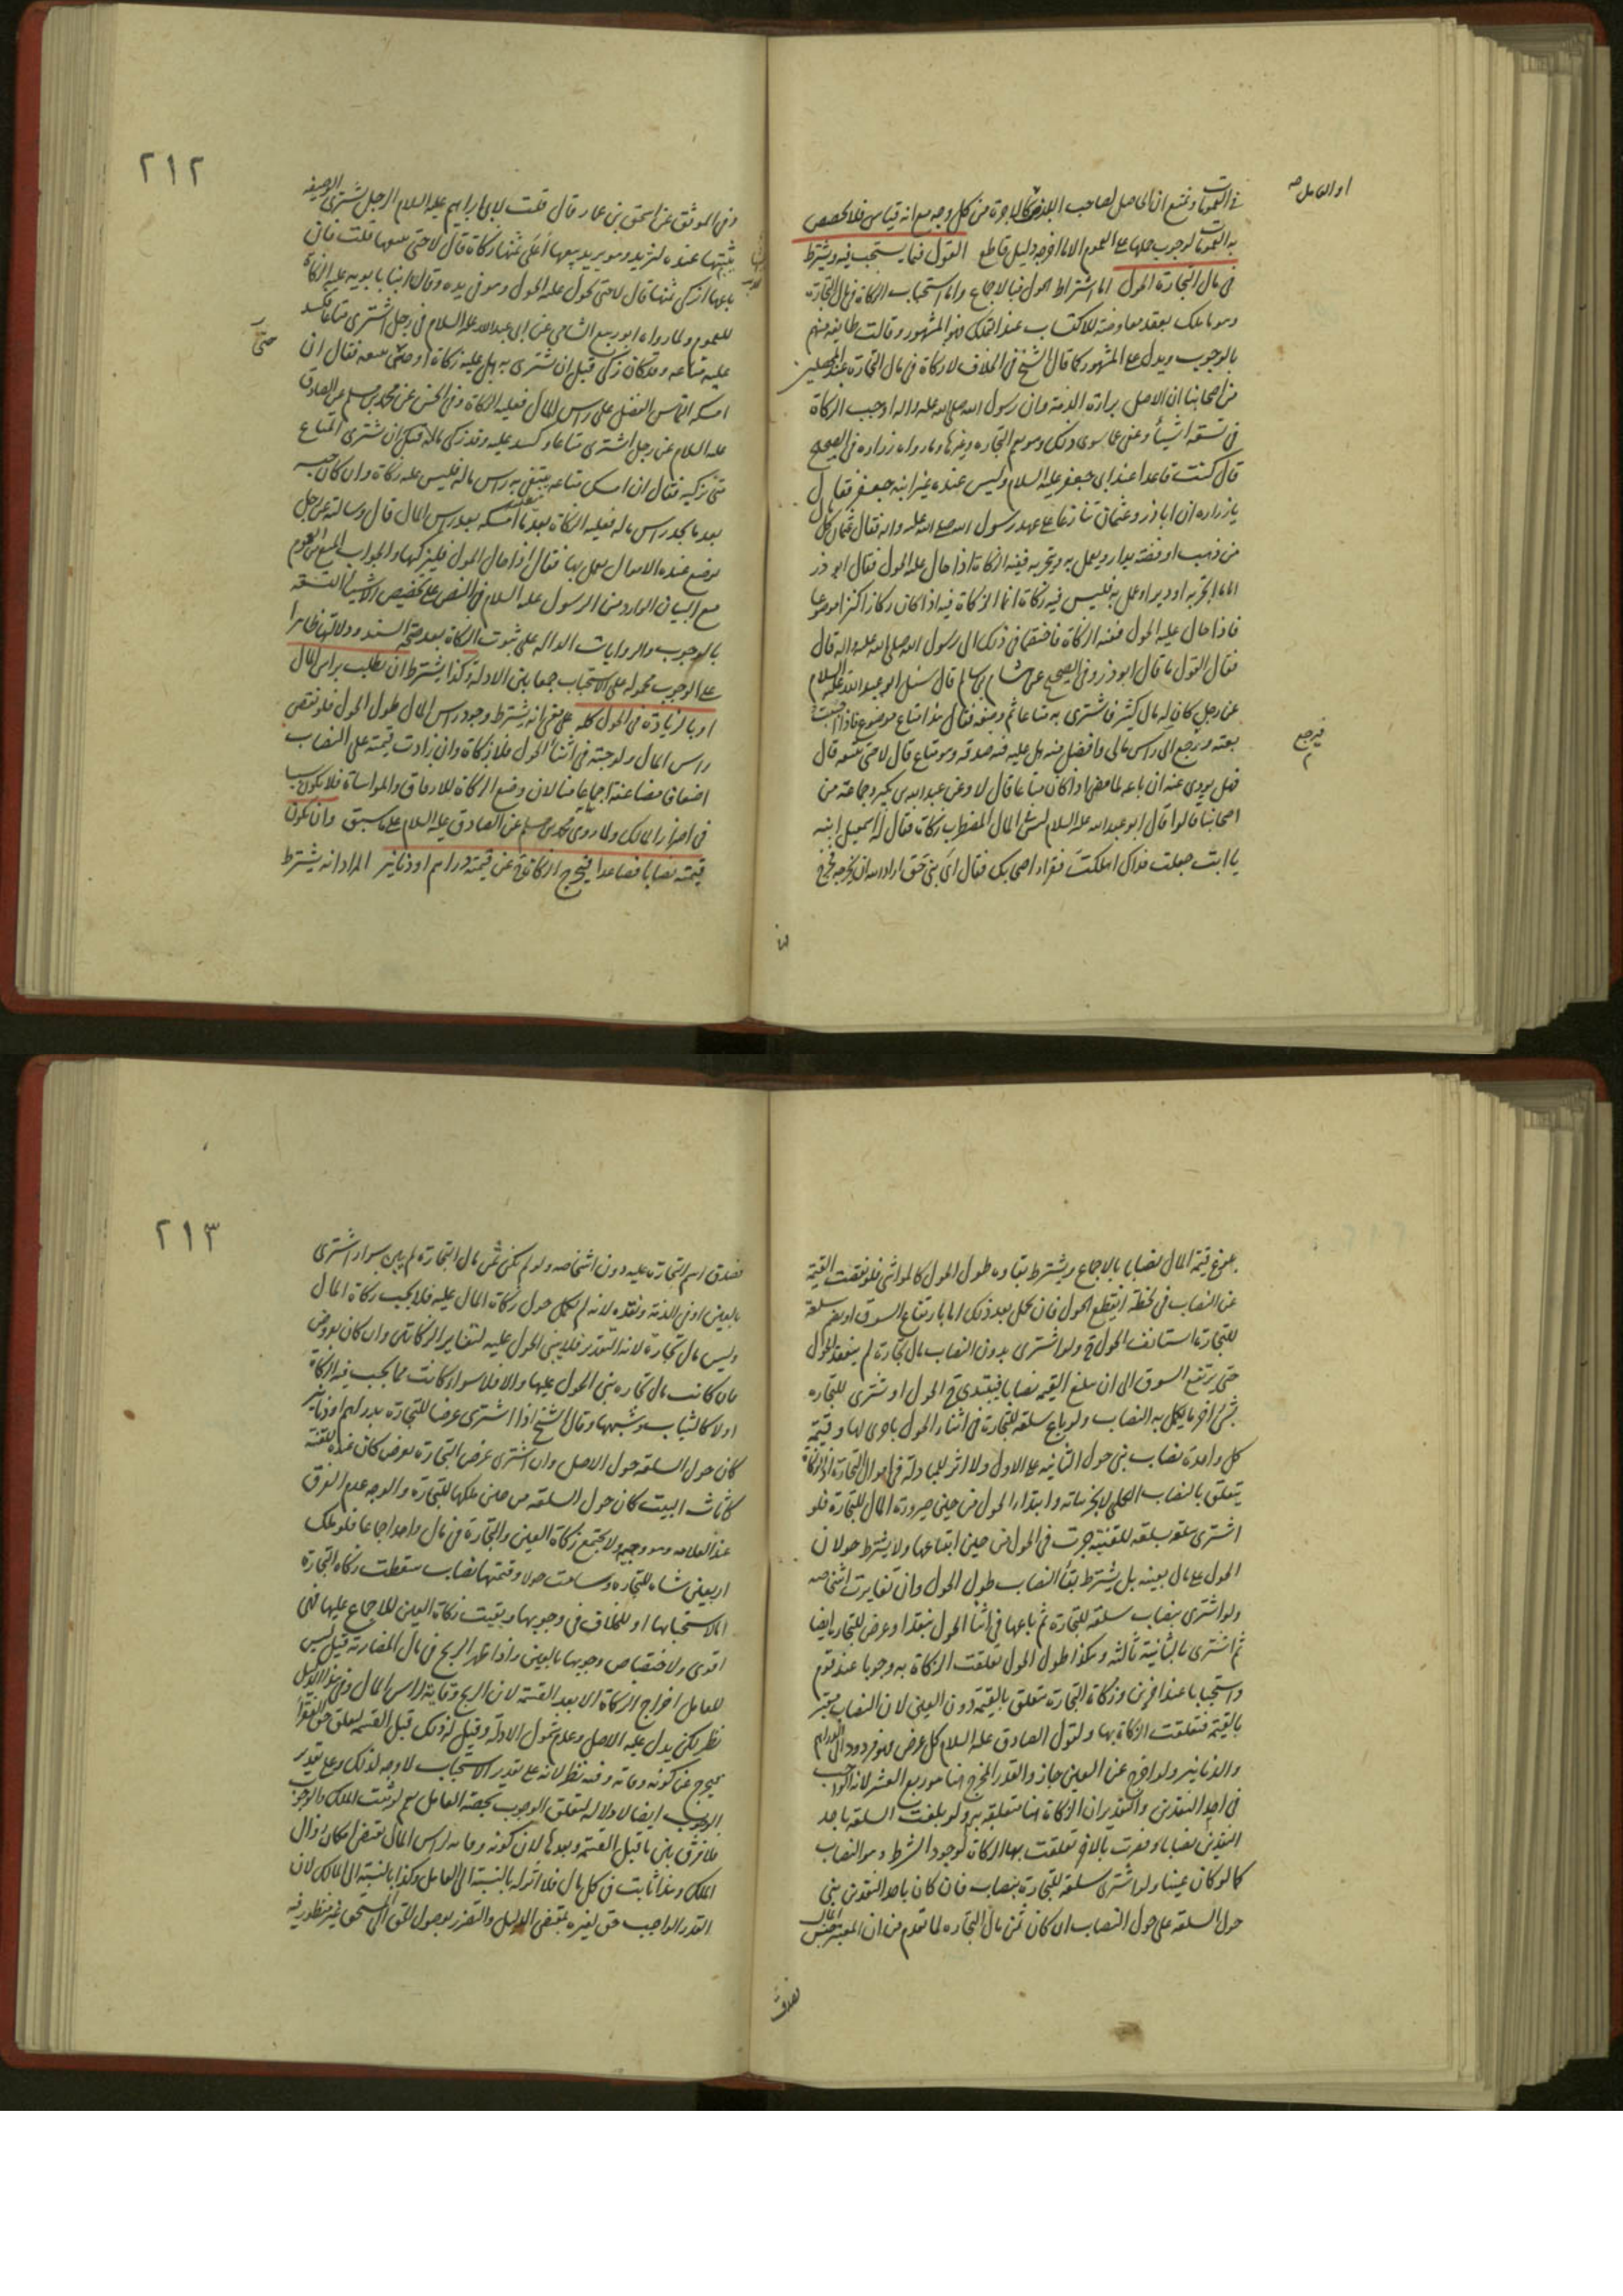 في العمومات ونمنع ان الحاصل لصاحب البذر كالاجرة من كل وجه مع انه قياس فلا يخصص
او العامل صه
به العمومات لوجوب حملها على العموم الا ما اخرجه دليل قاطع القول فيما يستحب فيه ويشترط
في مال التجارة الحول اما اشتراط الحول فبالاجماع واما استحباب الزكاة في مال التجارة
وهو ما ملك بعقد معاوضة للاكتساب عند التملك فهو المشهور وقالت طايفة منهم
بالوجوب ويدل على المشهور كما قال الشيخ في الخلاف لا زكاة في مال التجارة عند المحصلين
من اصحابنا ان الاصل براءة الذمة وان رسول الله صلى الله عليه واله اوجب الزكاة
في تسعة اشياء وعفى عما سوى ذلك وهو يعم التجارة وغيرها وما رواه زرارة في الصحيح
قال كنت قاعدا عند ابي جعفر عليه السلام وليس عنده غير ابنه جعفر فقال
يا زرارة ان اباذر وعثمان تنازعا على عهد رسول الله صلى الله عليه واله فقال عثمان كل
من ذهب او فضة يدار ويعمل به ويتجر به ففيه الزكاة اذا حال عليه الحول فقال ابو ذر
اما ما اتجر به او دير او عمل به فليس فيه زكاة انما الزكاة فيه اذا كان ركازا كنزا موضوعا
فاذا حال عليه الحول ففيه الزكاة فاختصما في ذلك الى رسول الله صلى الله عليه واله قال
فقال القول ما قال ابوذر وفي الصحيح عن هشام بن سالم قال سئل ابو عبد الله عليه السلام
عن رجل كان له مال كثير فاشترى به متاعا ثم وضعه فقال هذا متاع موضوع فاذا احببت
بعته ويرجع الى راس مالي وافضل منه هل عليه فيه صدقة وهو متاع قال لا حتى تبيعه قال
فيرجع
فهل يؤدي عنه ان باعه لما مضى اذا كان متاعا قال لا وعن عبد الله بن بكير وجماعة من
اصحابنا قالوا قال ابو عبد الله عليه السلام ليس في المال المضطرب زكاة فقال له اسمعيل ابنه
يا ابت جعلت فداك اهلكت فقراء اصحابك فقال اي بني حق اراد الله ان يخرجه فخرج
٢١٢
وفي الموثق عن اسحق بن عمار قال قلت لابي ابراهيم عليه السلام الرجل يشتري الوصيفة
يثبتها عنده لتزيد وهو يريد بيعها أعلى ثمنها زكاة قال لا حتى يبيعها قلت فان
باعها ازكى ثمنها قال لا حتى يحول عليه الحول وهو في يده وقال ابنا بابويه عليه الزكاة
للعموم ولما رواه ابو ربيع الشامي عن ابي عبد الله عليه السلام في رجل اشترى متاعا فكسد
عليه متاعه وقد كان زكى قبل ان يشتري به هل عليه زكاة او حتى يبيعه فقال ان
حتى
امسكه التماس الفضل على راس المال فعليه الزكاة وفي الحسن عن محمد بن مسلم عن الصادق
عليه السلام عن رجل اشترى متاعا وكسد عليه وقد زكى ماله قبل ان يشتري المتاع
متى يزكيه فقال ان امسك متاعه يبتغي به راس ماله فليس عليه زكاة وان كان حبسه
بعد ما يجد راس ماله فعليه الزكاة بعد ما امسكه بعد راس المال قال وسالته عن رجل
توضع عنده الاموال يعمل بها فقال اذا حال الحول فليزكها والجواب المنع من العموم
مع البيان الوارد من الرسول عليه السلام في النص على تخصيص الاشياء التسعة
بالوجوب والروايات الدالة على ثبوت الزكاة بعد صحة السند ودلالتها ظاهرا
على الوجوب محمولة على الاستحباب جمعا بين الادلة وكذا يشترط ان يطلب براس المال
او بالزيادة في الحول كله على معنى انه يشترط وجود راس المال طول الحول فلو نقص
راس المال ولو حبة في اثناء الحول فلا زكاة وان زادت قيمته على النصاب
اضعافا مضاعفة اجماعا منا لان وضع الزكاة للارفاق والمواساة فلا يكون سببا
في اضرار المالك ولما روى محمد بن مسلم عن الصادق عليه السلام على ما سبق وان تكون
قيمته نصابا فصاعدا فيخرج الزكاة عن قيمته دراهم او دنانير المراد انه يشترط
بلوغ قيمة المال نصابا بالاجماع ويشترط بقاوه طول الحول كالمواشي فلو نقصت القيمة
عن النصاب في لحظة انقطع الحول فان كمل بعد ذلك اما بارتفاع السوق او بضم سلعة
للتجارة استانف الحول ح ولو اشترى بدون النصاب مال تجارة لم ينعقد الحول
حتى يرتفع السوق الى ان تبلغ القيمة نصابا فيبتدئ ح الحول او يشتري للتجارة
شيئ اخر ما يكمل به النصاب ولو باع سلعة للتجارة في اثناء الحول باخرى لها وقيمة
كل واحدة نصاب بنى حول الثانية على الاول ولا اثر للمبادلة في اموال التجارة اذ الزكاة
يتعلق بالنصاب الكلي لا بجزئياته وابتداء الحول من حين صيرورة المال للتجارة فلو
اشترى سلعة بسلعة للقنية جرت في الحول من حين ابتياعها ولا يشترط حولان
الحول على مال بعينه بل يشترط بقاء النصاب طول الحول وان تغايرت اشخاصه
ولو اشترى بنصاب سلعة للتجارة ثم باعها في اثناء الحول بنقد او عرض للتجارة ايضا
ثم اشترى بالثانية ثالثة وهكذا طول الحول تعلقت الزكاة به وجوبا عند قوم
واستحبابا عند اخرين وزكاة التجارة تتعلق بالقيمة دون العين لان النصاب معتبر
بالقيمة فتعلقت الزكاة بها ولقول الصادق عليه السلام كل عرض فهو مردود الى الدراهم
والدنانير ولو اخرج عن العين جاز والقدر المخرج هنا هو ربع العشر لانه الواجب
في احد النقدين والتقدير ان الزكاة هنا متعلقة به ولو بلغت السلعة باحد
النقدين نصابا وقصرت بالاخر تعلقت بها الزكاة لوجود الشرط وهو النصاب
كما لو كان عينا ولو اشترى سلعة للتجارة بنصاب فان كان باحد النقدين بنى
حول السلعة على حول النصاب ان كان ثمن مال التجارة لما تقدم من ان المعتبر جنس المال
فصدق
٢١٣
فصدق اسم التجارة عليه دون اشخاصه ولو لم يكن ثمن مال التجارة لم يبن سواء اشترى
بالعين او في الذمة ونقده لانه لم يكمل حول زكاة المال عليه فلا يجب زكاة المال
وليس مال تجارة لانه التقدير فلا يبنى الحول عليه لتغاير الزكاتين وان كان بعروض
فان كانت مال تجارة بنى الحول عليها والا فلا سواء كانت مما يجب فيه الزكاة
اولا كالثياب وشبهها وقال الشيخ اذا اشترى عرضا للتجارة بدراهم او دنانير
كان حول السلعة حول الاصل وان اشترى عرض التجارة بعرض كان عنده للقنية
كاثاث البيت كان حول السلعة من حين ملكها للتجارة والوجه عدم الفرق
عند العلامة وهو وجيه ولا يجتمع زكاة العين والتجارة في مال واحد اجماعا فلو ملك
اربعين شاة للتجارة وسامت حولا وقيمتها نصاب سقطت زكاة التجارة
اما لاستحبابها او للخلاف في وجوبها وبقيت زكاة العين للاجماع عليها فهي
اقوى ولاختصاص وجوبها بالعين واذا ظهر الربح في مال المضاربة قيل ليس
للعامل اخراج الزكاة الا بعد القسمة لان الربح وقاية لراس المال وفي هذا الدليل
نظر لكن يدل عليه الاصل وعدم شمول الادلة وقيل له ذلك قبل القسمة لتعلق حق الفقراء
فيخرج عن كونه وقاية وفيه نظر لانه على تقدير الاستحباب لا وجه لذلك وعلى تقدير
الوجوب ايضا لا دلالة لتعلق الوجوب بحصة العامل نعم لو ثبت الملك والوجوب
فلا فرق بين ما قبل القسمة وبعدها لان كونه وقاية لراس المال يقتضي امكان زوال
الملك وهذا ثابت في كل مال فلا اثر له بالنسبة الى العامل وكذا بالنسبة الى المالك لان
القدر الواجب حق لغيره بمقتضى الدليل والتضرر بوصول الحق الى المستحق غير منظور فيه